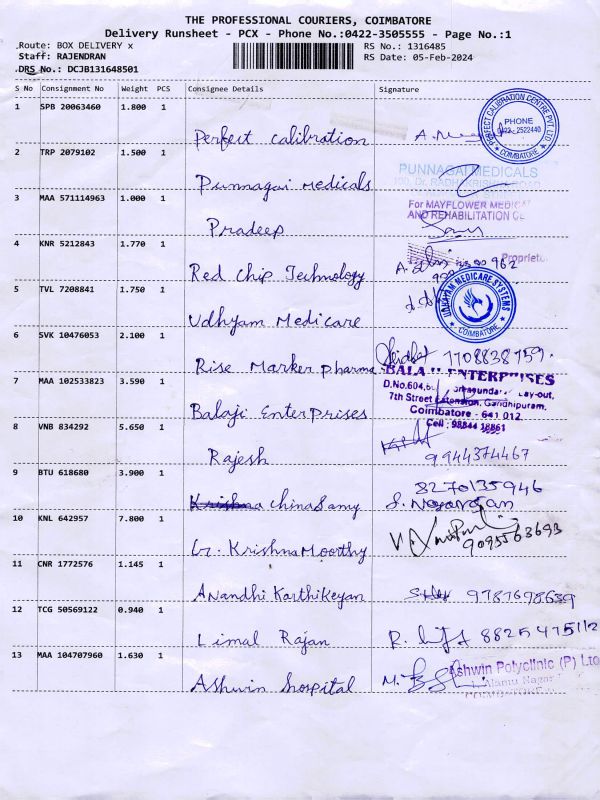 THE PROFESSIONAL COURIERS, COIMBATORE
Delivery Runsheet - PCX - Phone No.:0422-3505555 - Page No.:1
Route: BOX DELIVERY x
RS No.: 1316485
Staff: RAJENDRAN
RS Date: 05-Feb-2024
DRS No.: DCJB131648501
S No Consignment No Weight PCS Consignee Details Signature
1 SPB 20063460 1.800 1
Perfect Calibration
PERFECT CALIBRATION CENTRE PVT LTD
PHONE
2522440
COIMBATORE
2 TRP 2079102 1.500 1
Punnagai Medicals
PUNNAGAI MEDICALS
3 MAA 571114963 1.000 1
For MAYFLOWER MEDICA
AND REHABILITATION CE
Pradeep
4 KNR 5212843 1.770 1
Proprietor
Red Chip Technology
5 TVL 7208841 1.750 1
Udhyam Medicare
UDHYAM MEDICARE SYSTEMS
COIMBATORE
6 SVK 10476053 2.100 1
Rise Marker pharma
7708838759.
7 MAA 102533823 3.590 1
Balaji Enterprises
BALA ENTERPRISES
7th Street Extension, Gandhipuram,
Coimbatore - 641 012.
Cell : 98844 18861
8 VNB 834292 5.650 1
Rajesh
9944374467
9 BTU 618680 3.900 1
8270135946
China Samy
10 KNL 642957 7.800 1
9095563693
G. Krishna Moorthy
11 CNR 1772576 1.145 1
Anandhi Karthikeyan
9787698659
12 TCG 50569122 0.940 1
Limal Rajan
8825475112
13 MAA 104707960 1.630 1
Ashwin hospital
Ashwin Polyclinic (P) Ltd